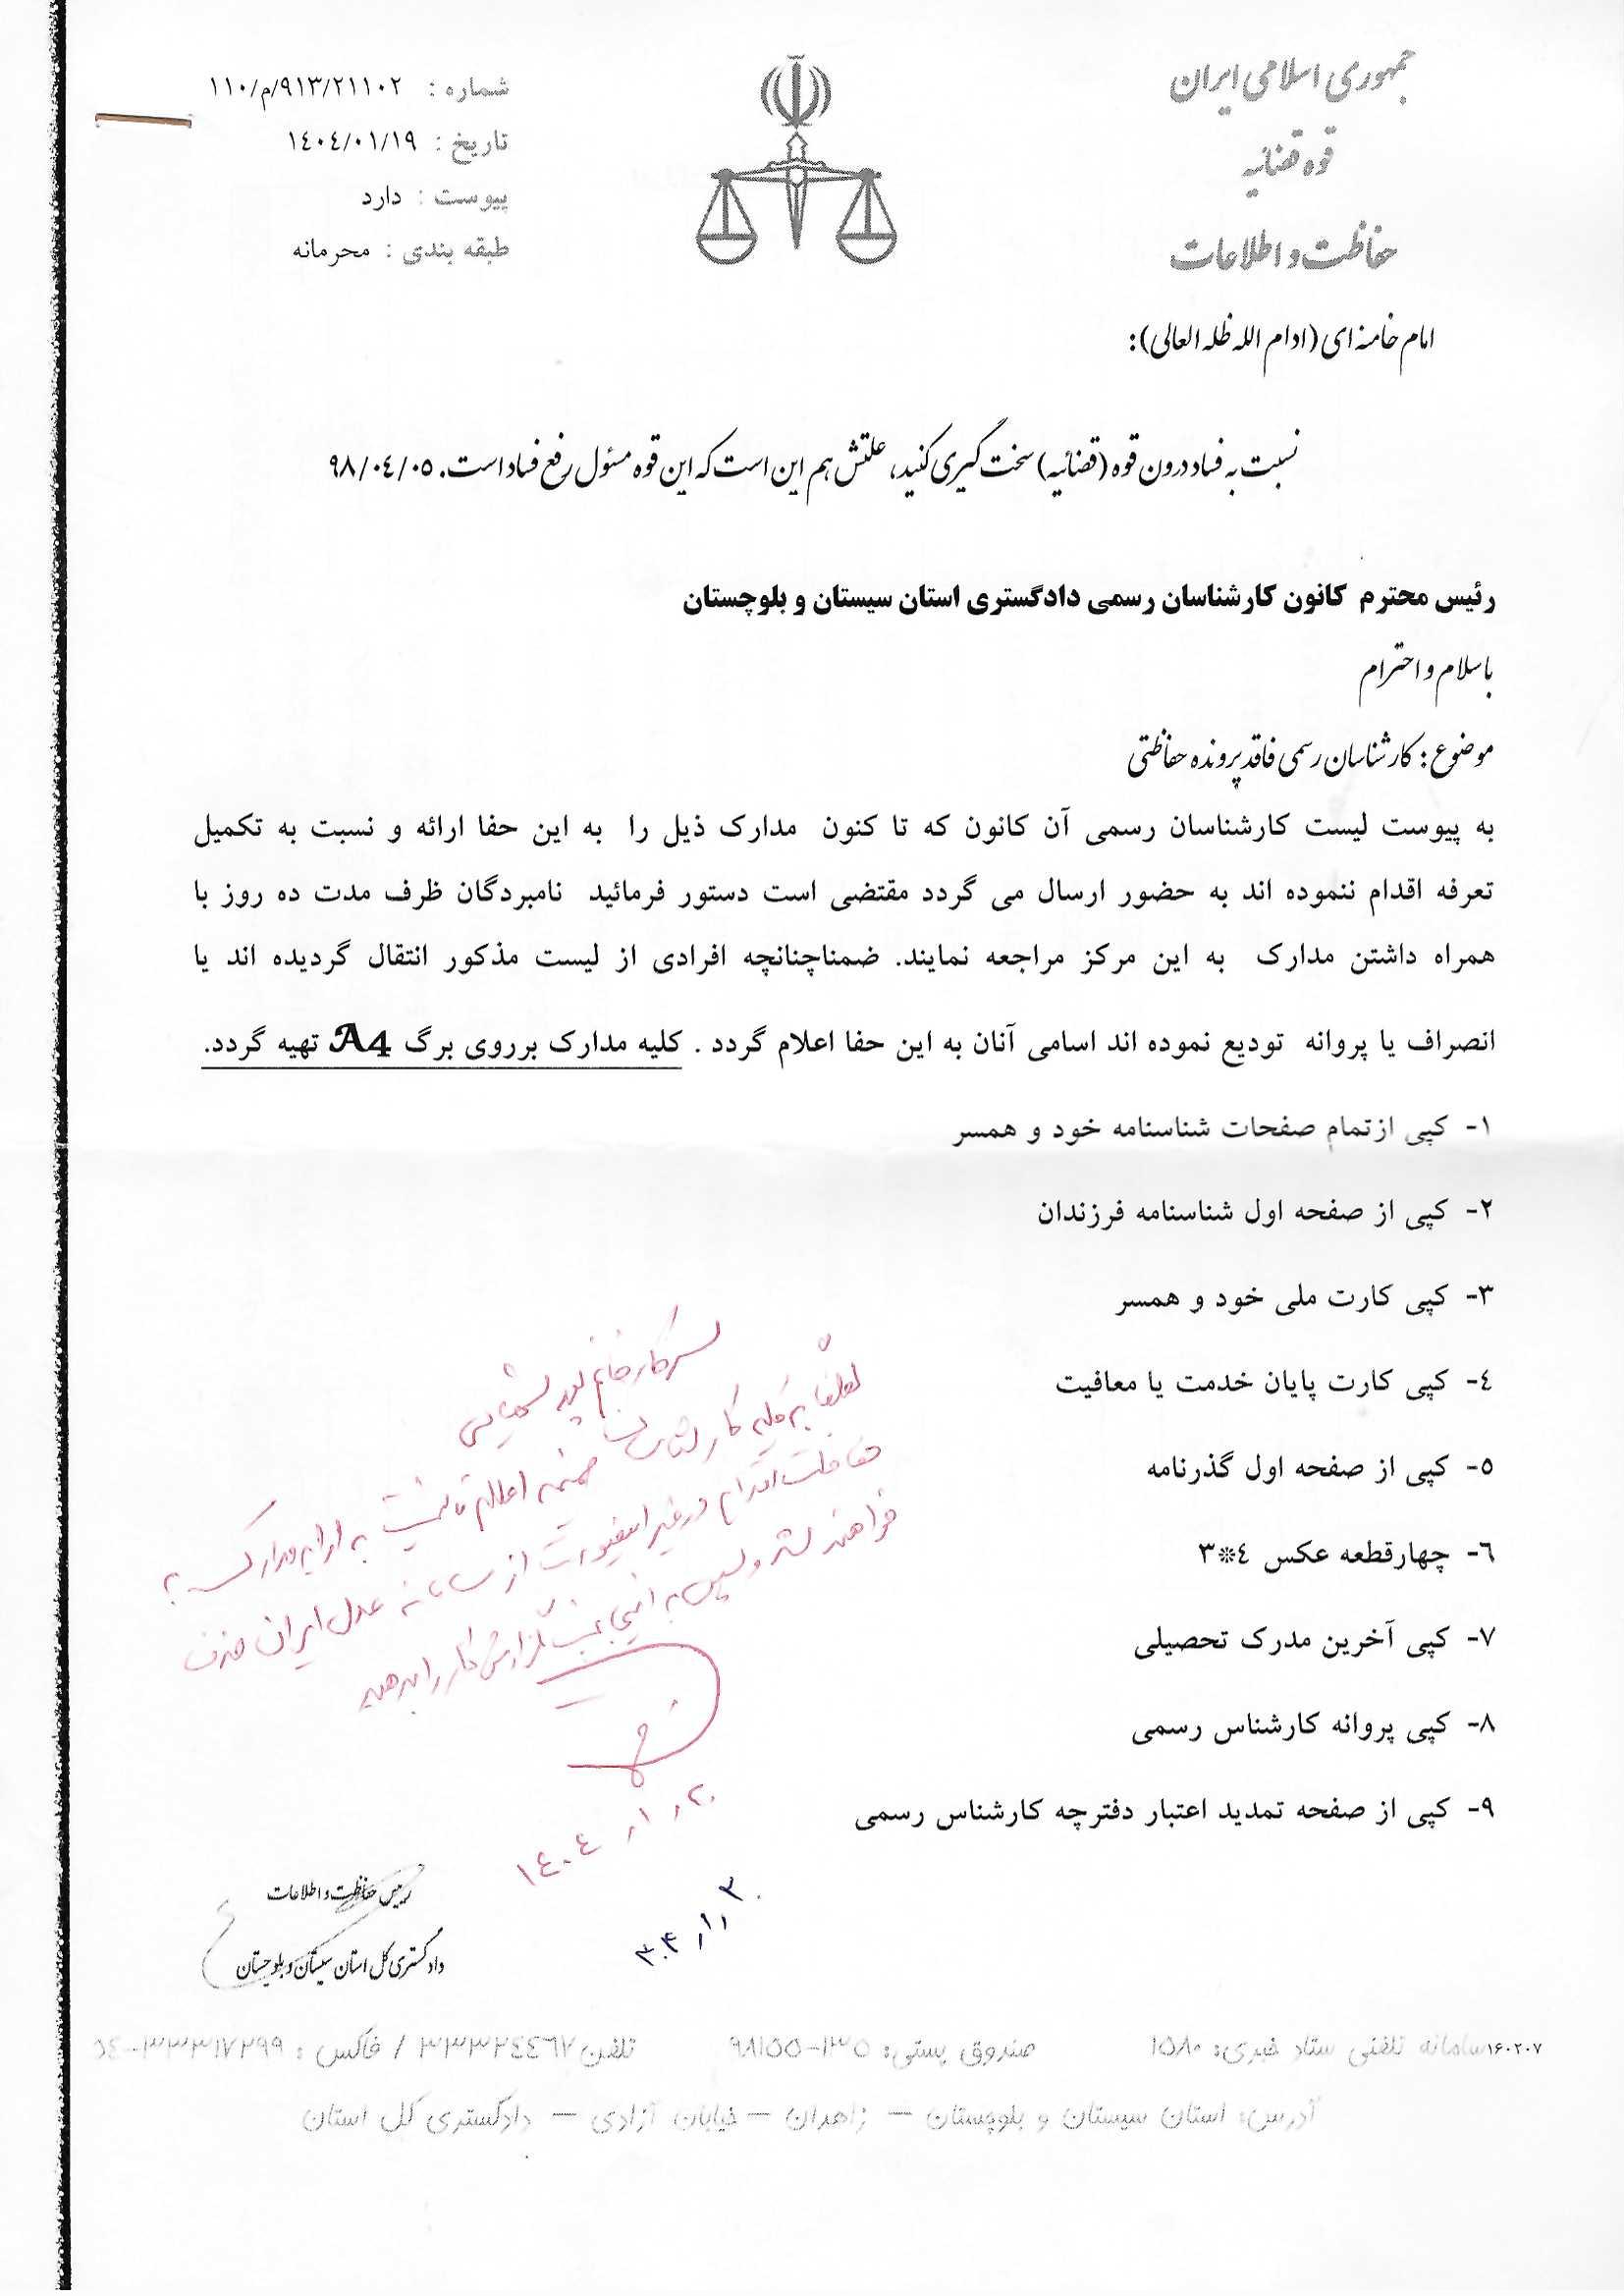 جمهوری اسلامی ایران
قوه قضائیه
حفاظت و اطلاعات
شماره : ۱۱۰/م/۹۱۳/۲۱۱۰۲
تاریخ : ۱۴۰۴/۰۱/۱۹
پیوست : دارد
طبقه بندی : محرمانه
امام خامنه ای (ادام الله ظله العالی):
نسبت به فساد درون قوه (قضائیه) سخت گیری کنید، علتش هم این است که این قوه مسئول رفع فساد است. ۹۸/۰۴/۰۵
رئیس محترم کانون کارشناسان رسمی دادگستری استان سیستان و بلوچستان
با سلام و احترام
موضوع: کارشناسان رسمی فاقد پرونده حفاظتی
به پیوست لیست کارشناسان رسمی آن کانون که تا کنون مدارک ذیل را به این حفا ارائه و نسبت به تکمیل
تعرفه اقدام ننموده اند به حضور ارسال می گردد مقتضی است دستور فرمائید نامبردگان ظرف مدت ده روز با
همراه داشتن مدارک به این مرکز مراجعه نمایند. ضمناچنانچه افرادی از لیست مذکور انتقال گردیده اند یا
انصراف یا پروانه تودیع نموده اند اسامی آنان به این حفا اعلام گردد . کلیه مدارک برروی برگ A4 تهیه گردد.
۱- کپی ازتمام صفحات شناسنامه خود و همسر
۲- کپی از صفحه اول شناسنامه فرزندان
۳- کپی کارت ملی خود و همسر
۴- کپی کارت پایان خدمت یا معافیت
۵- کپی از صفحه اول گذرنامه
۶- چهارقطعه عکس ۴*۳
۷- کپی آخرین مدرک تحصیلی
۸- کپی پروانه کارشناس رسمی
۹- کپی از صفحه تمدید اعتبار دفترچه کارشناس رسمی
سرکار خانم
لطفا به کلیه کارشناسان ضمنه اعلام به ارایه مدارک به
حفاظت اقدام درغیر اینصورت از سامانه عدل ایران حذف
خواهند شد و سپس به اینجانب گزارش کار را بدهید
۱۴۰۴/۱/۲۰
رئیس حفاظت و اطلاعات
دادگستری کل استان سیستان و بلوچستان
۱۶۰۲۰۷ سامانه تلفنی ستاد خبری: ۱۵۸۰ صندوق پستی: ۱۳۵-۹۸۱۵۵ تلفن ۳۳۳۲۴۴۶۷ / فاکس : ۳۳۳۱۷۲۹۹-۰۵۴
آدرس: استان سیستان و بلوچستان – زاهدان – خیابان آزادی – دادگستری کل استان